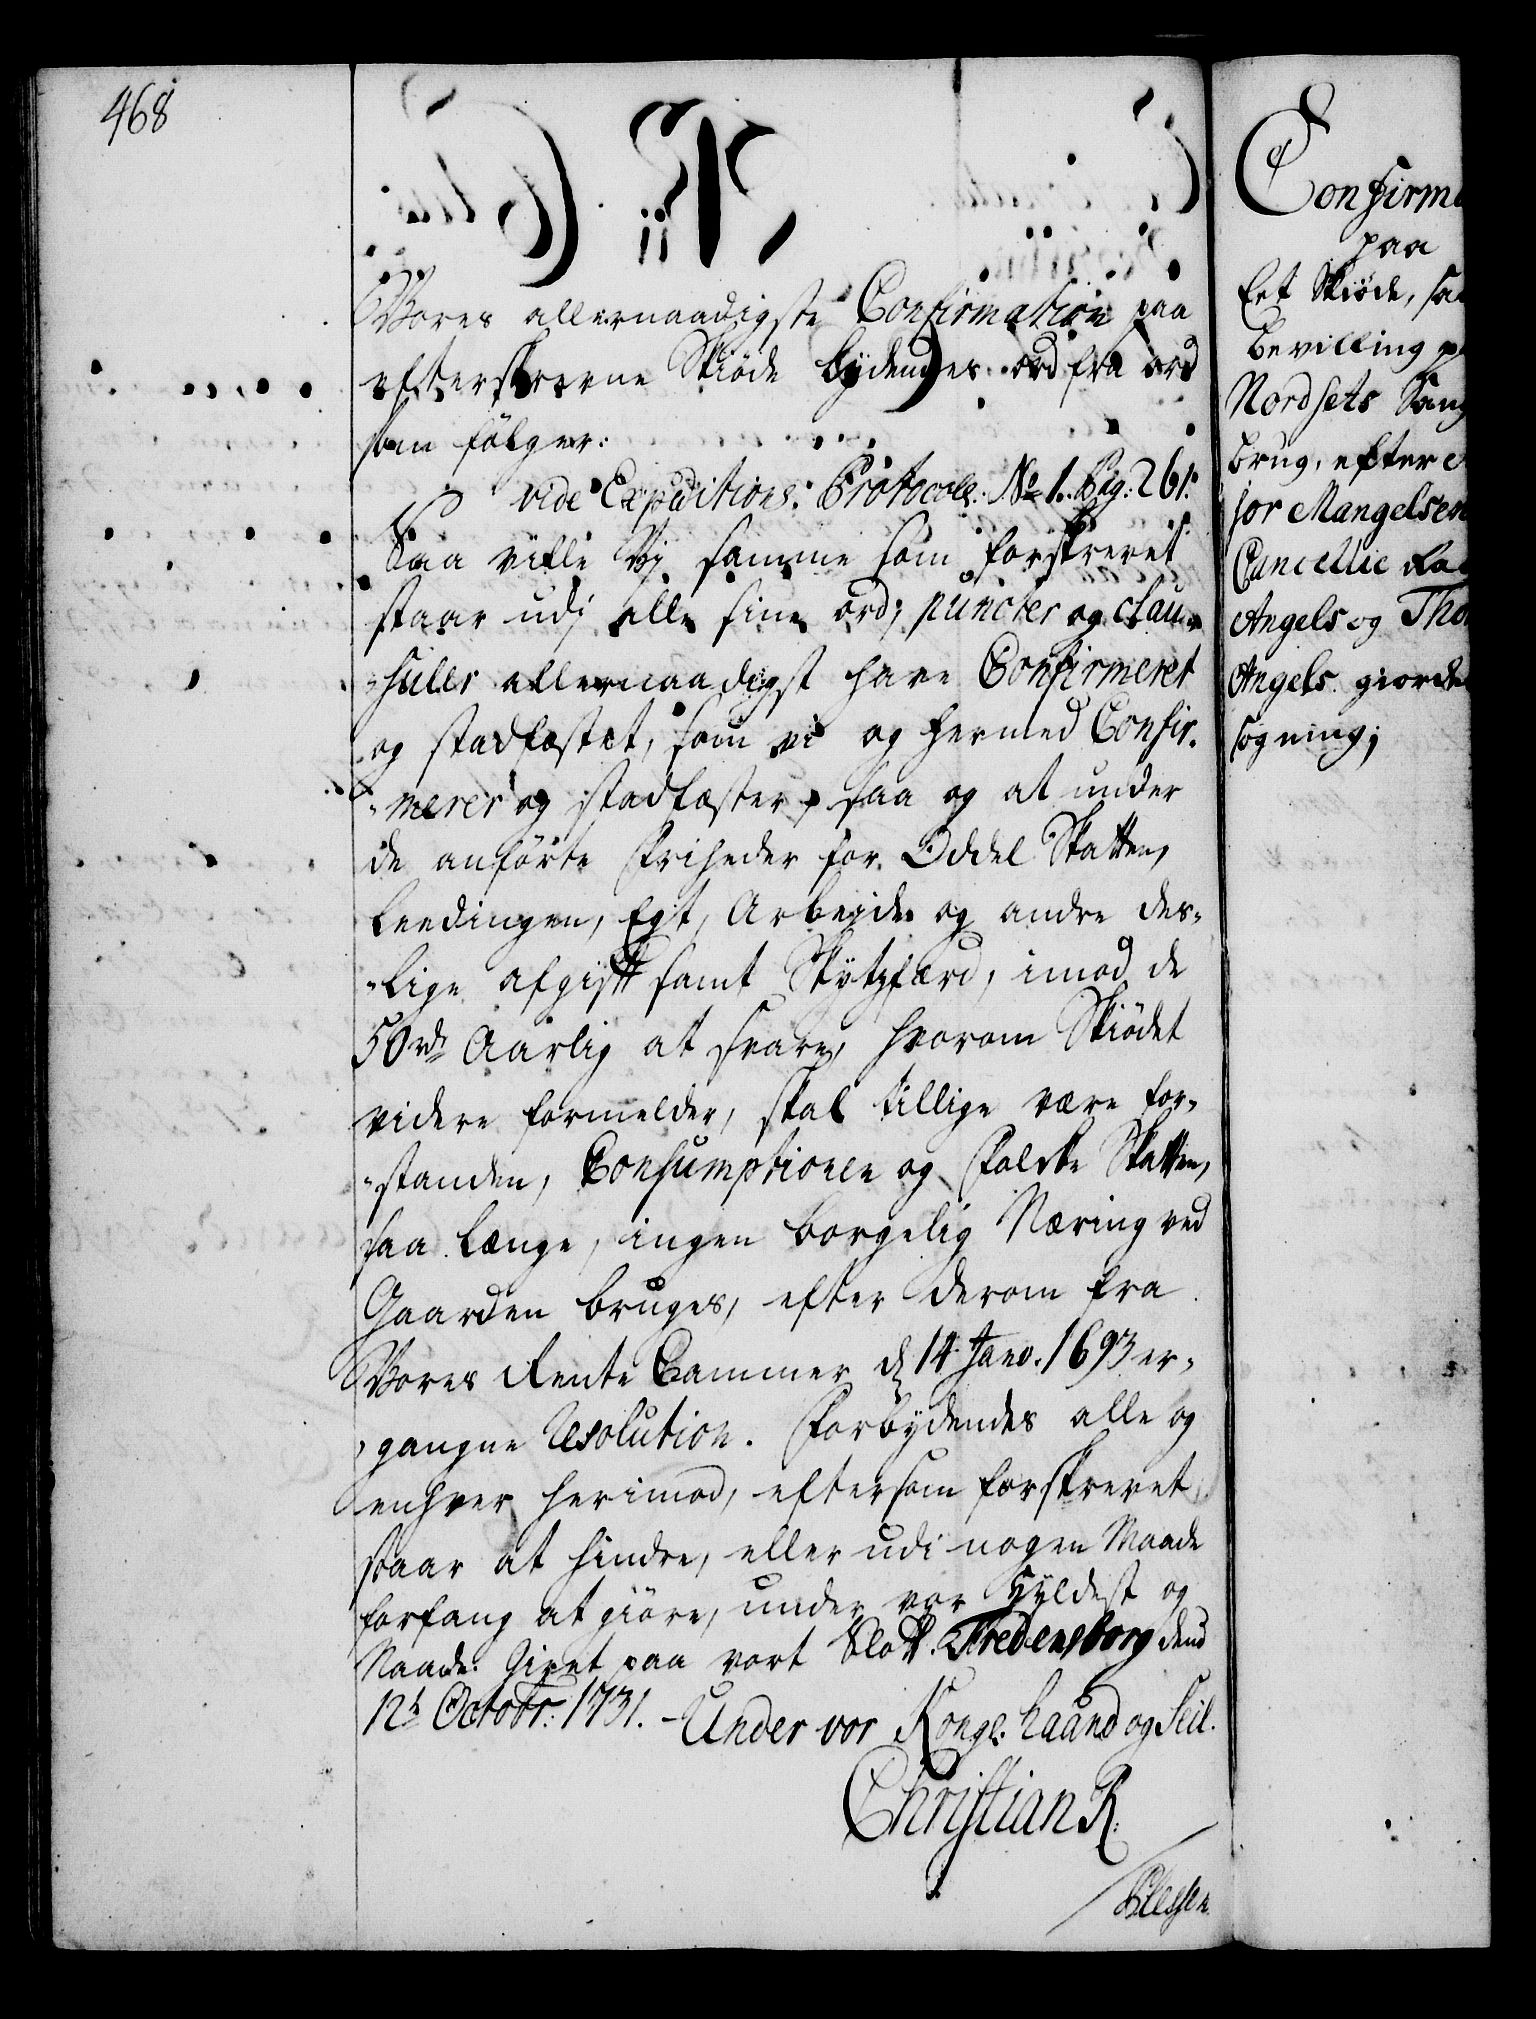 468
Vores allernaadigste Confirmation paa
efterskrevne Skiöde lydendes ord fra ord
som fölger:
vide Expeditions: Protocoll: No 1. Pag: 261:
Saa ville Vj samme som forskrevet
staar udj alle sine ord, puncter og clau-
-suller allernaadigst have Confirmeret
og stadfæstet, som vi og hermed Confir-
-merer og stadfæster, saa og at under
de anförte Friheder for Oddel Skatten,
Leedingen, Egt, Arbeyde og andre des-
-lige afgifft samt Skytzfærd, imod de
50 rdr Aarlig at svare, hvorom Skiödet
videre formelder, skal tillige være for-
-standen, Consumptionen og Folcke Skatten,
saa længe, ingen borgelig Næring ved
Gaarden bruges, efter derom fra
Vores Rente Cammer dj 14 Janv. 1693 er-
gangne Resolution. Forbydendes alle og
enhver herimod, eftersom forskrevet
staar at hindre, eller udi nogen Maade
forfang at giöre, under vor Hyldest og
Naade. Givet paa vort Slott. Fredensborg dend
12t Octobr: 1731. - Under vor Kongl: haand og Seil.
Christian R.
Confirma
paa
Eet Skiöde, sa
bevilling p
Nordsets Saug
brug, efter
jor Mangelsen
Cancellie Ra
Angels og Tho
Angels. giorde
sögning;